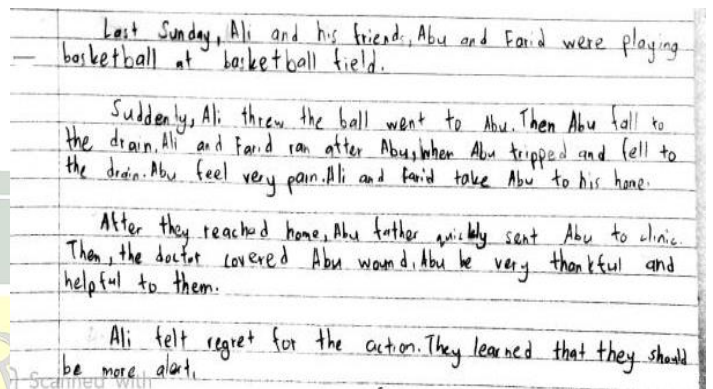 Last Sunday, Ali and his friends, Abu and Farid were playing
basketball at basketball field.
Suddenly, Ali threw the ball went to Abu. Then Abu fall to
the drain. Ali and Farid ran after Abu, when Abu tripped and fell to
the drain. Abu feel very pain. Ali and Farid take Abu to his home.
After they reached home, Abu father quickly sent Abu to clinic.
Then, the doctor covered Abu wound. Abu be very thankful and
helpful to them.
Ali felt regret for the action. They learned that they should
be more alert.
Scanned with